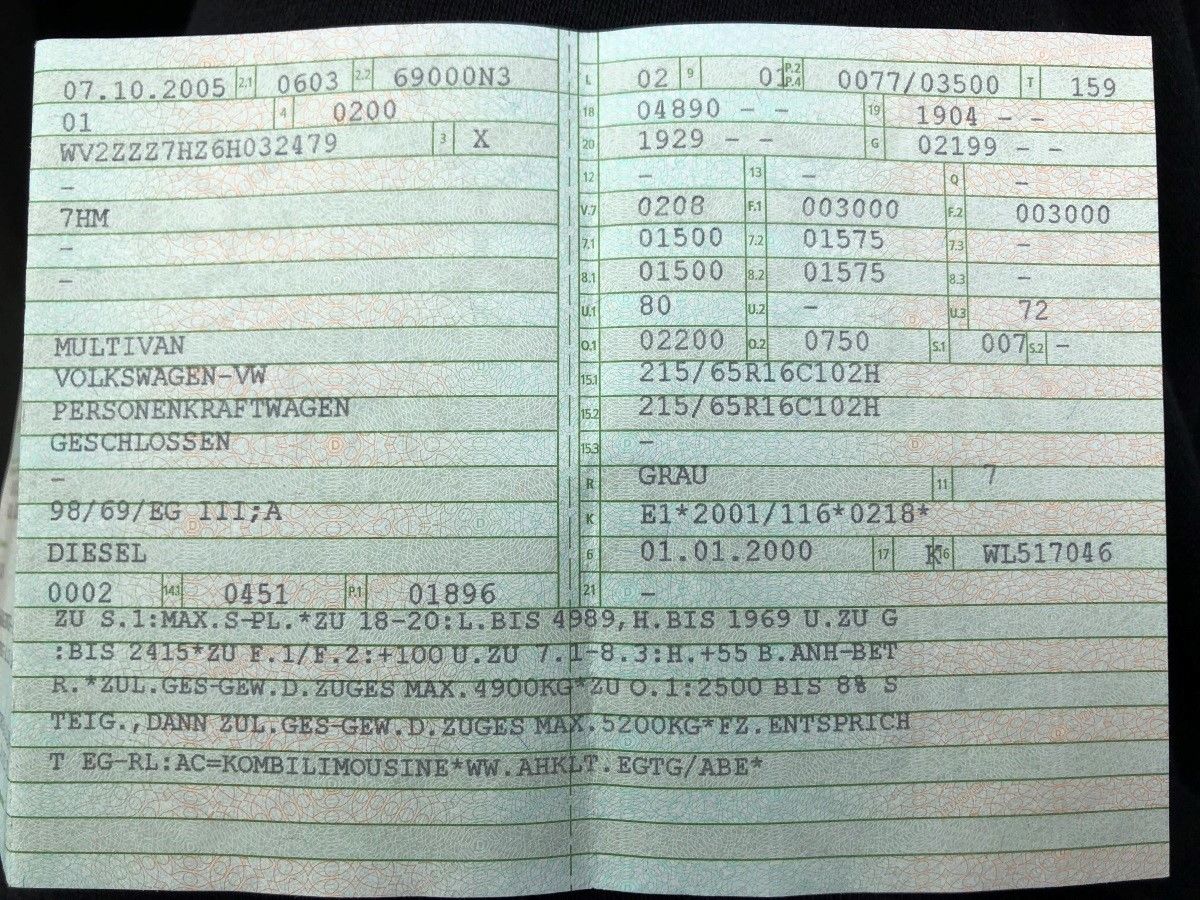 07.10.2005 2.1 0603 2.2 69000N3
01 4 0200
WV2ZZZ7HZ6H032479 3 X
–
7HM
–
–
MULTIVAN
VOLKSWAGEN-VW
PERSONENKRAFTWAGEN
GESCHLOSSEN
–
98/69/EG III;A
DIESEL
0002 14.1 0451 P.1 01896
L 02 9 01 P.2 P.4 0077/03500 T 159
18 04890 – – 19 1904 – –
20 1929 – – G 02199 – –
12 – 13 – Q –
V.7 0208 F.1 003000 F.2 003000
7.1 01500 7.2 01575 7.3 –
8.1 01500 8.2 01575 8.3 –
U.1 80 U.2 – U.3 72
O.1 02200 O.2 0750 S.1 007 S.2 –
15.1 215/65R16C102H
15.2 215/65R16C102H
15.3 –
R GRAU 11 7
K E1*2001/116*0218*
6 01.01.2000 17 K 16 WL517046
21 –
ZU S.1:MAX.S-PL.*ZU 18-20:L.BIS 4989,H.BIS 1969 U.ZU G
:BIS 2415*ZU F.1/F.2:+100 U.ZU 7.1-8.3:H.+55 B.ANH-BET
R.*ZUL.GES-GEW.D.ZUGES MAX.4900KG*ZU O.1:2500 BIS 8% S
TEIG.,DANN ZUL.GES-GEW.D.ZUGES MAX.5200KG*FZ.ENTSPRICH
T EG-RL:AC=KOMBILIMOUSINE*WW.AHKLT.EGTG/ABE*